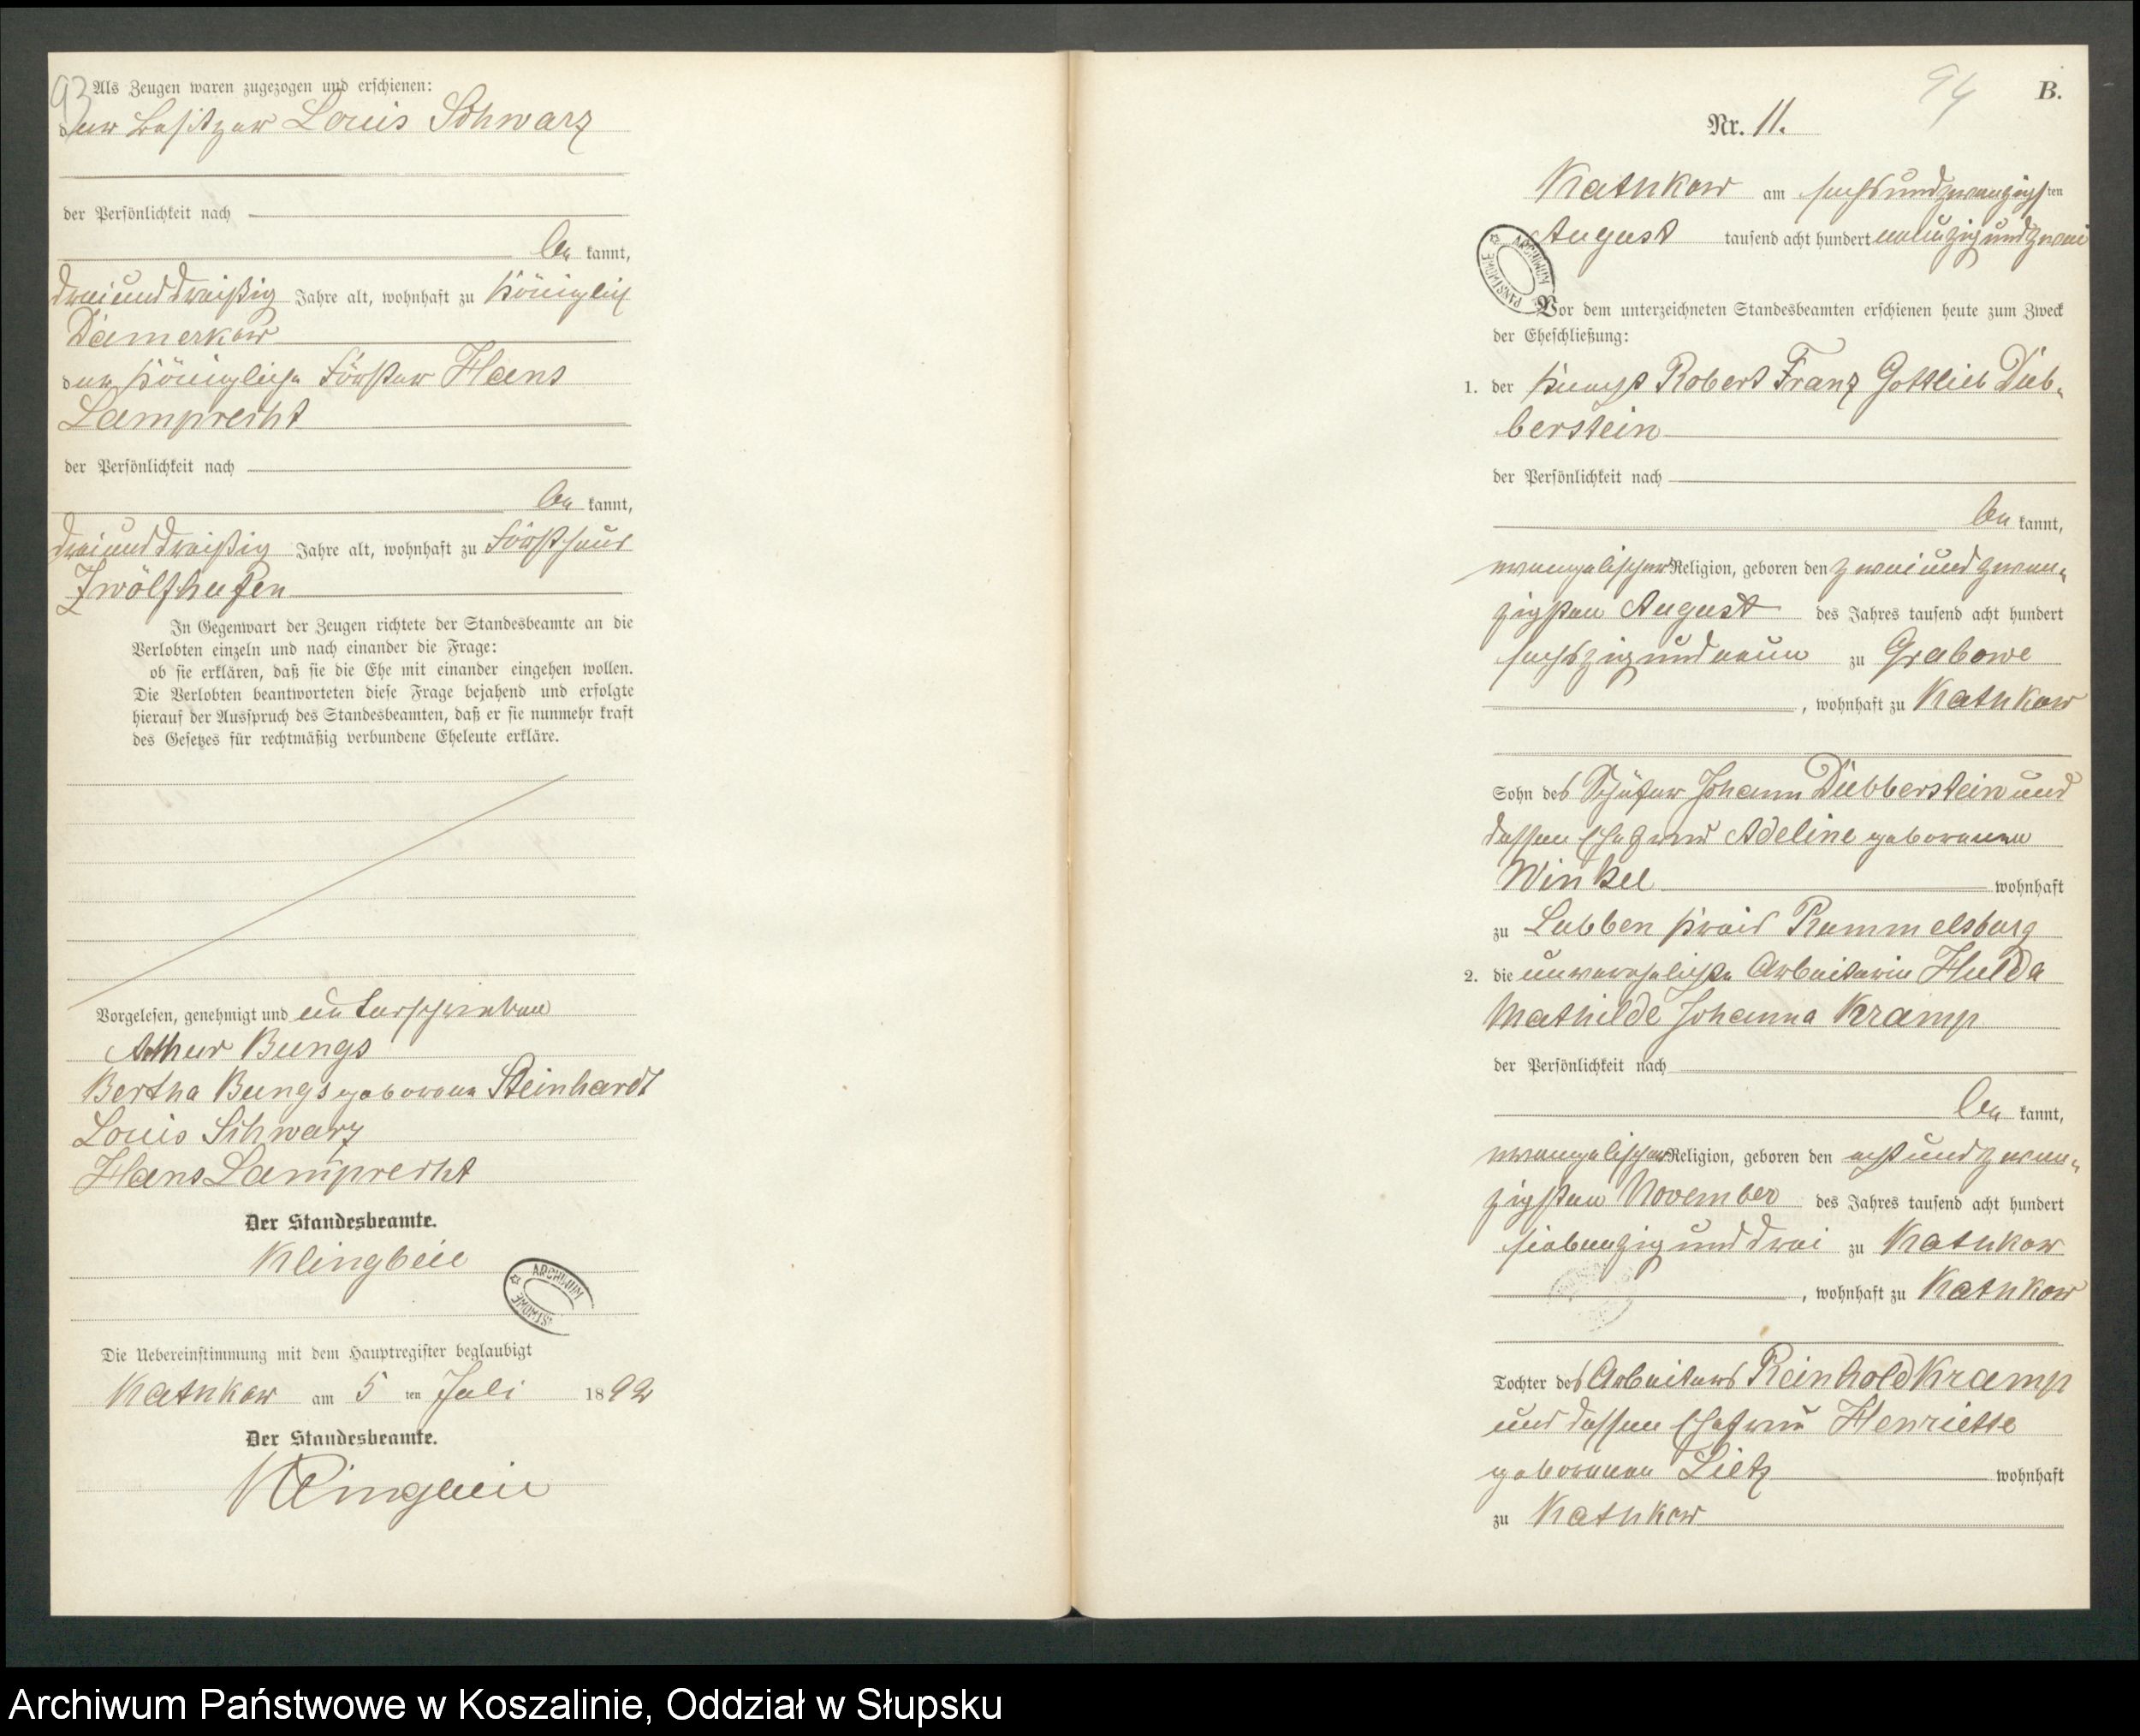 93
Als Zeugen waren zugezogen und erschienen:
der Besitzer Louis Schwarz
der Persönlichkeit nach
be kannt,
dreiunddreißig Jahre alt, wohnhaft zu Königlich
Damerkow
der Königliche Förster Hans
Lamprecht
der Persönlichkeit nach
be kannt,
dreiunddreißig Jahre alt, wohnhaft zu Forsthaus
Zwölfhufen
In Gegenwart der Zeugen richtete der Standesbeamte an die
Verlobten einzeln und nach einander die Frage:
ob sie erklären, daß sie die Ehe mit einander eingehen wollen.
Die Verlobten beantworteten diese Frage bejahend und erfolgte
hierauf der Ausspruch des Standesbeamten, daß er sie nunmehr kraft
des Gesetzes für rechtmäßig verbundene Eheleute erkläre.
Vorgelesen, genehmigt und unterschrieben
Arthur Bungs
Bertha Bungs geborene Steinhardt
Louis Schwarz
Hans Lamprecht
Der Standesbeamte.
Klingbeil
ARCHIWUM
Die Uebereinstimmung mit dem Hauptregister beglaubigt
Kathkow am 5 ten Juli 1892
Der Standesbeamte.
Klingbeil
94
B.
Nr. 11.
Kathkow am sechsundzwanzigsten
August tausend acht hundert neunzig und zwei
ARCHIWUM PAŃSTWOWE
Vor dem unterzeichneten Standesbeamten erschienen heute zum Zweck
der Eheschließung:
1. der Knecht Robert Franz Gottlieb Düb-
berstein
der Persönlichkeit nach
be kannt,
evangelischer Religion, geboren den zweiundzwan-
zigsten August des Jahres tausend acht hundert
sechszig und neun zu Grabowe
, wohnhaft zu Kathkow
Sohn des Schäfer Johann Dübberstein und
dessen Ehefrau Adeline geborenen
Winkel wohnhaft
zu Lubben Kreis Rummelsburg
2. die unverehelichte Arbeiterin Hulda
Mathilde Johanna Kramp
der Persönlichkeit nach
be kannt,
evangelischer Religion, geboren den achtundzwan-
zigsten November des Jahres tausend acht hundert
siebenzig und drei zu Kathkow
, wohnhaft zu Kathkow
Tochter des Arbeiters Reinhold Kramp
und dessen Ehefrau Henriette
geborenen Lietz wohnhaft
zu Kathkow
Archiwum Państwowe w Koszalinie, Oddział w Słupsku